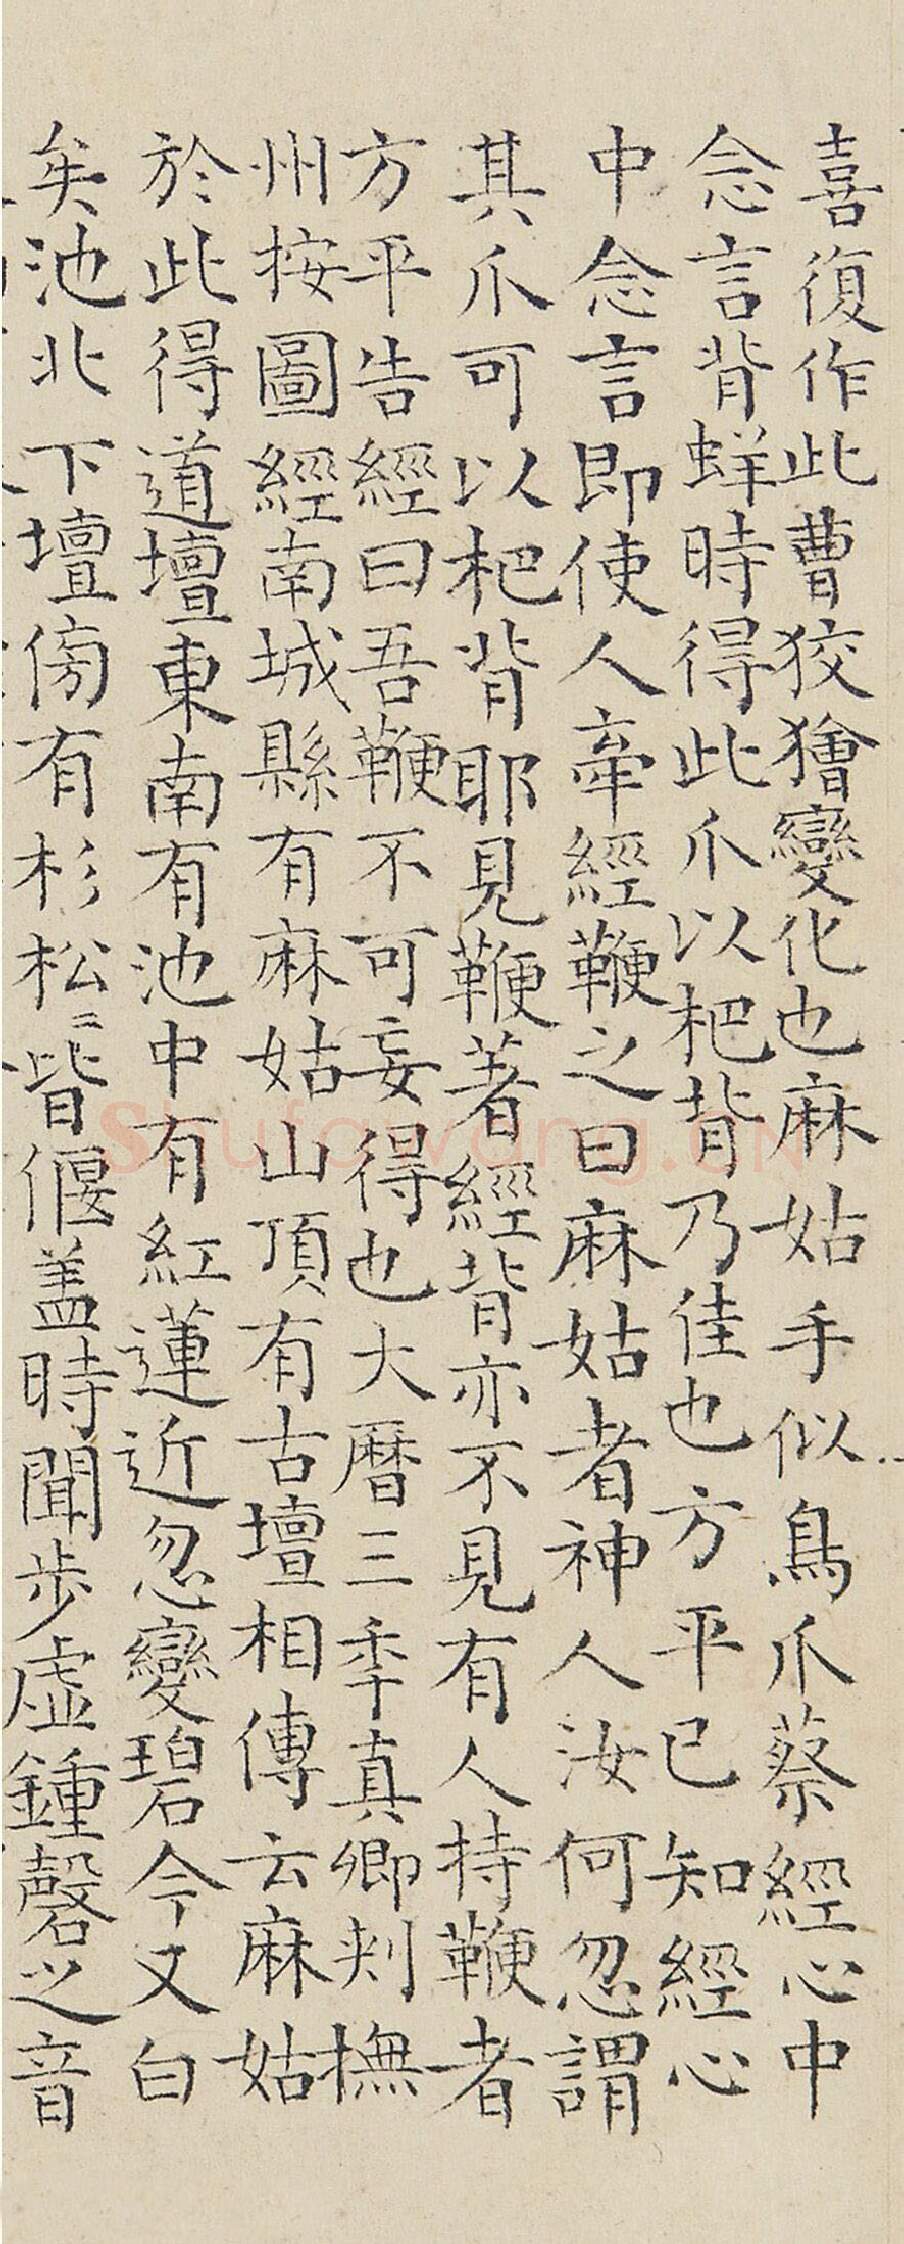 喜復作此曹狡獪變化也麻姑手似鳥爪蔡經心中
念言背蛘時得此爪以杷背乃佳也方平已知經心
中念言即使人牽經鞭之曰麻姑者神人汝何忽謂
其爪可以杷背耶見鞭著經背亦不見有人持鞭者
方平告經曰吾鞭不可妄得也大曆三年真卿刺撫
州按圖經南城縣有麻姑山頂有古壇相傳云麻姑
於此得道壇東南有池中有紅蓮近忽變碧今又白
矣池北下壇傍有杉松〻皆偃盖時聞步虛鍾磬之音
Shufawang.CN